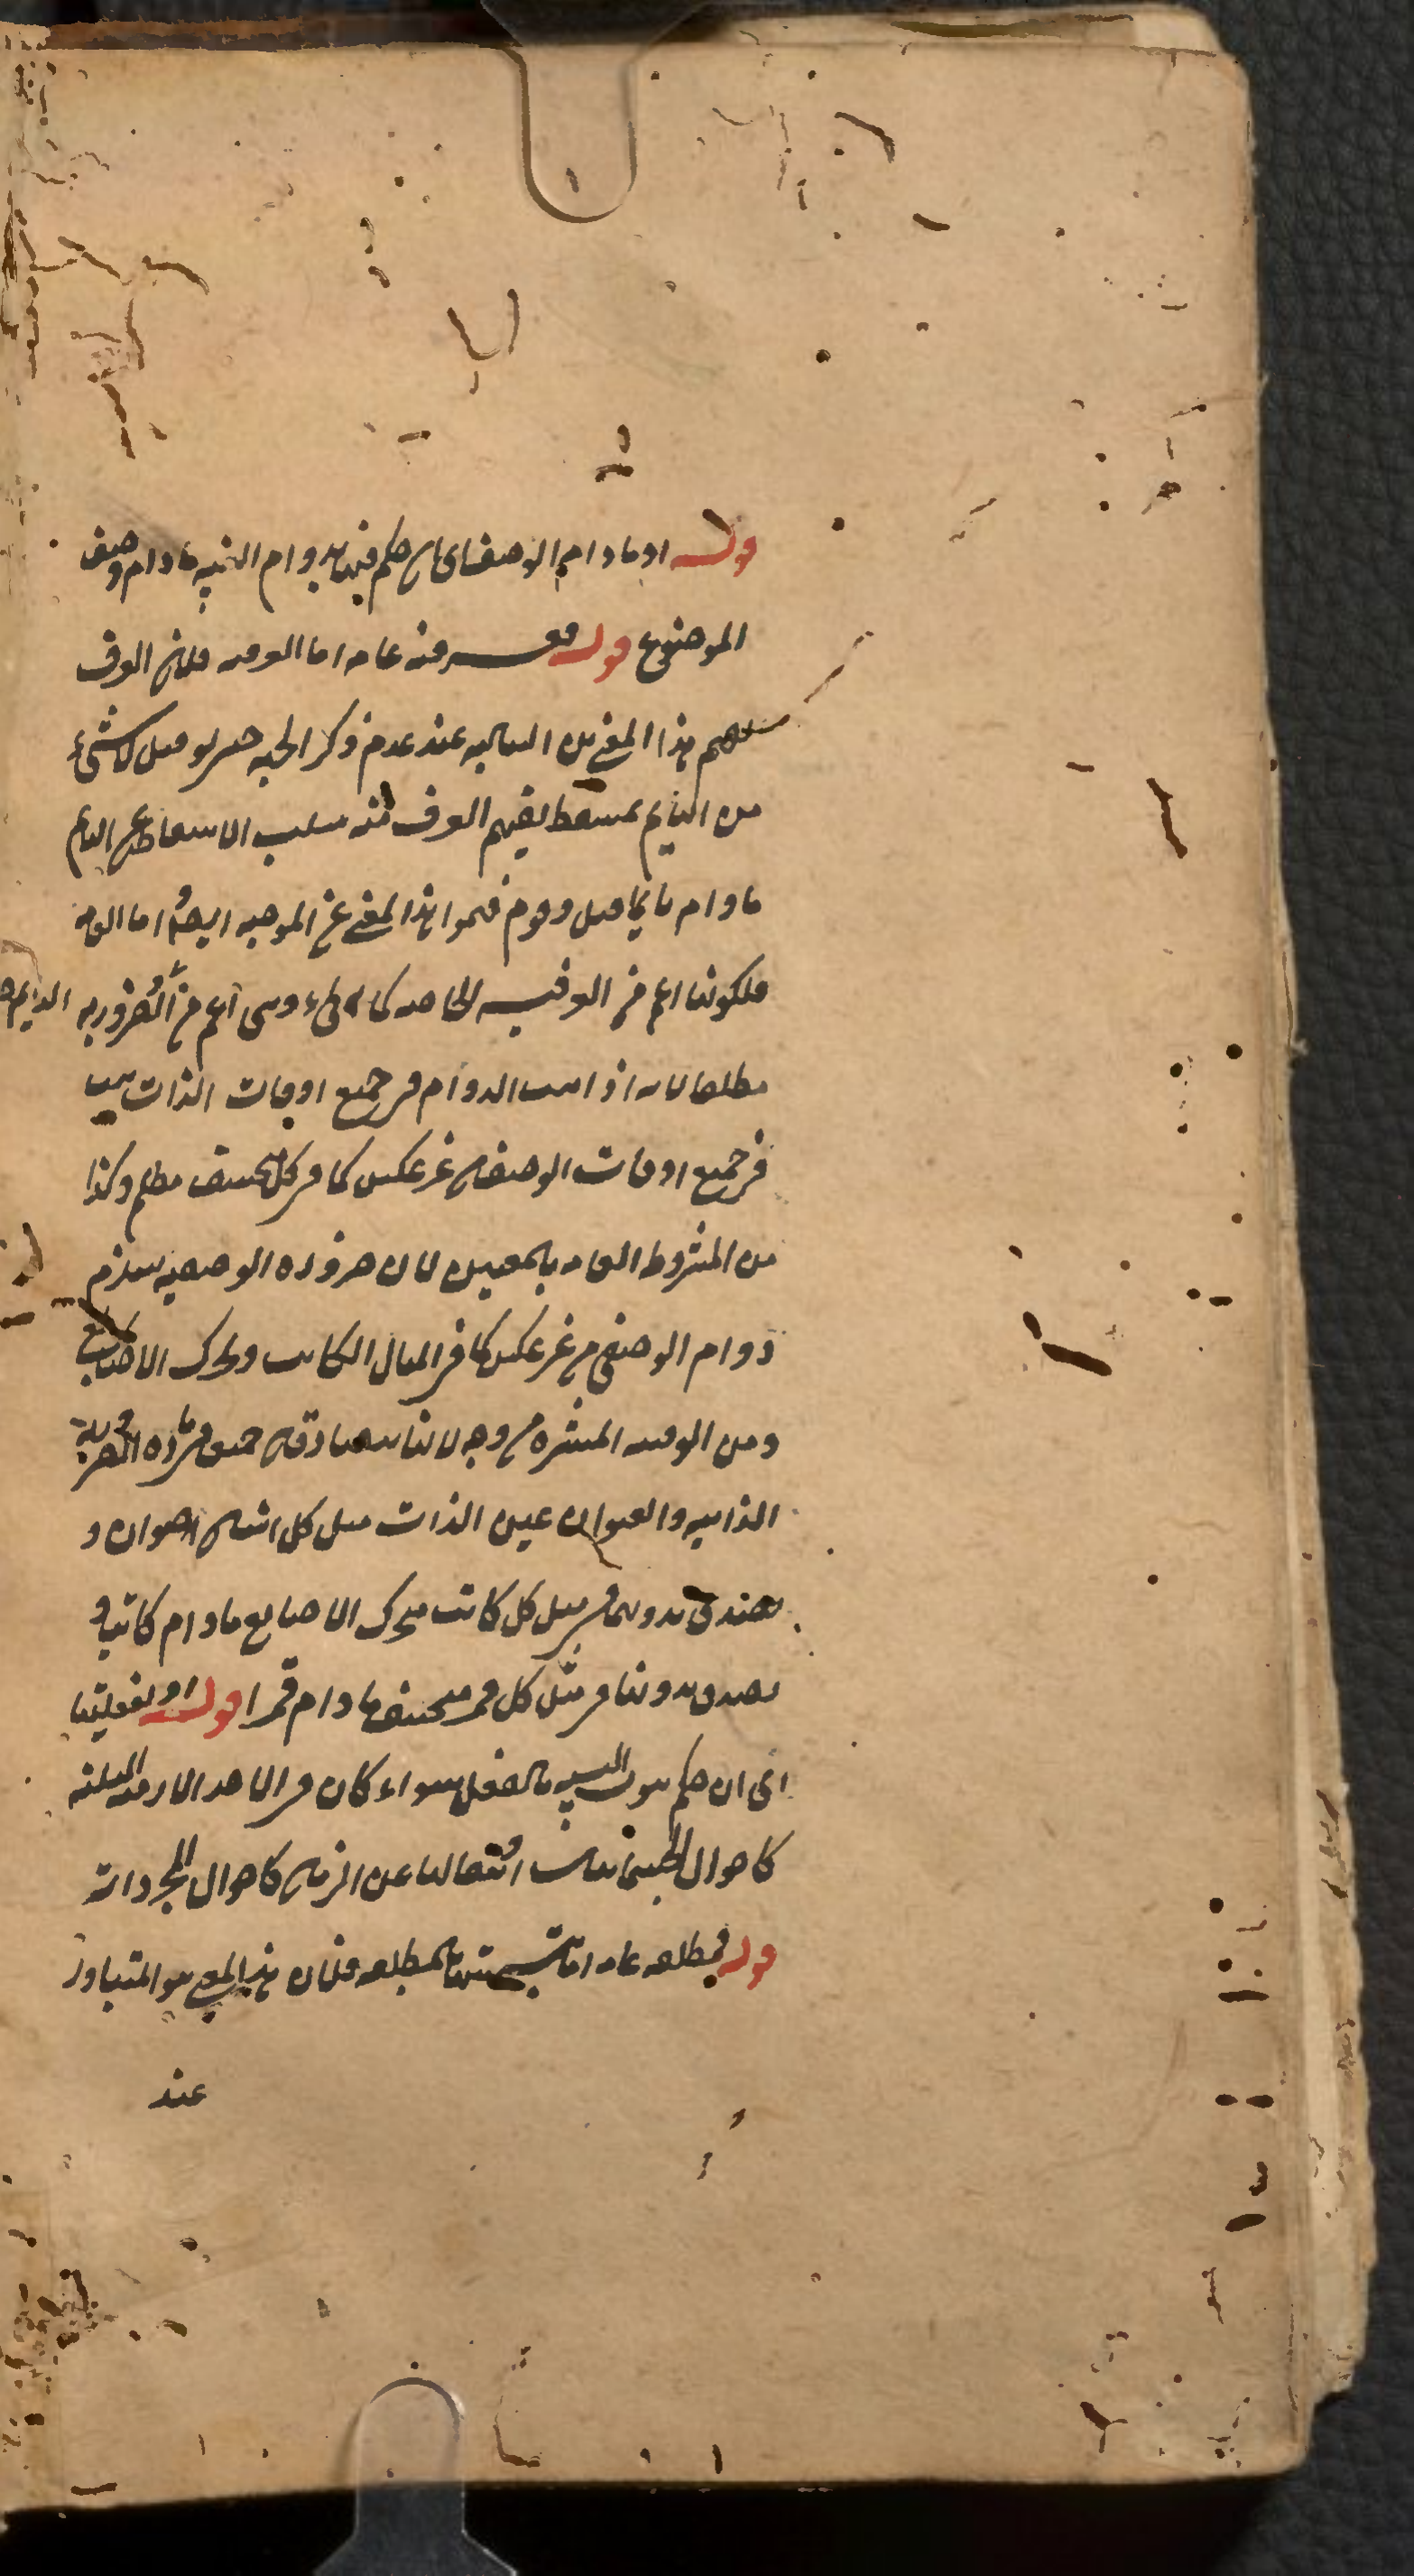 قوله او مادام الوصف اى ان حكم فيها بدوام النسبة مادام وصف
الموضوع قوله فعرفية عامة اما العرفية فلان العرف
يفهم هذا المعنى من السالبة عند عدم ذكر الجهة حتى لو قيل لا شئ
من النايم بمستيقظ يفهم العرف منه سلب الاستيقاظ عن النايم
مادام نايما قيل وقوم فهموا هذا المعنى عن الموجبة ايضا اما العامة
فلكونها اعم من العرفية الخاصة كما يجئ وهى اعم من الضرورية
مطلقا لانه اذا ثبت الدوام فى جميع اوقات الذات ثبت
فى جميع اوقات الوصف من غير عكس كما فى كل منخسف مظلم وكذا
من المشروطة العامة بالمعنيين لان ضرورة الوصفية يستلزم
دوام الوصفى من غير عكس كما فى المثال الكاتب وتحرك الاصابع
ومن الوقتية المنتشرة من وجه لانها تصادقه حيث مادة الضرورية
الذاتية والعنوان عين الذات مثل كل انسان حيوان و
يصدق بدونها فى مثل كل كاتب متحرك الاصابع مادام كاتبا و
يصدق بدونها فى مثل كل قمر منخسف مادام قمرا قوله او بفعليتها
اى ان حكم بثبوت النسبة بالفعل سواء كان فى احد الازمنة الثلثة
كاحوال الجسمانيات او متعاليا عن الزمان كاحوال المجردات
قوله فمطلقة عامة اما تسميتها بالمطلقة فلان هذا المعنى هو المتبادر
عند